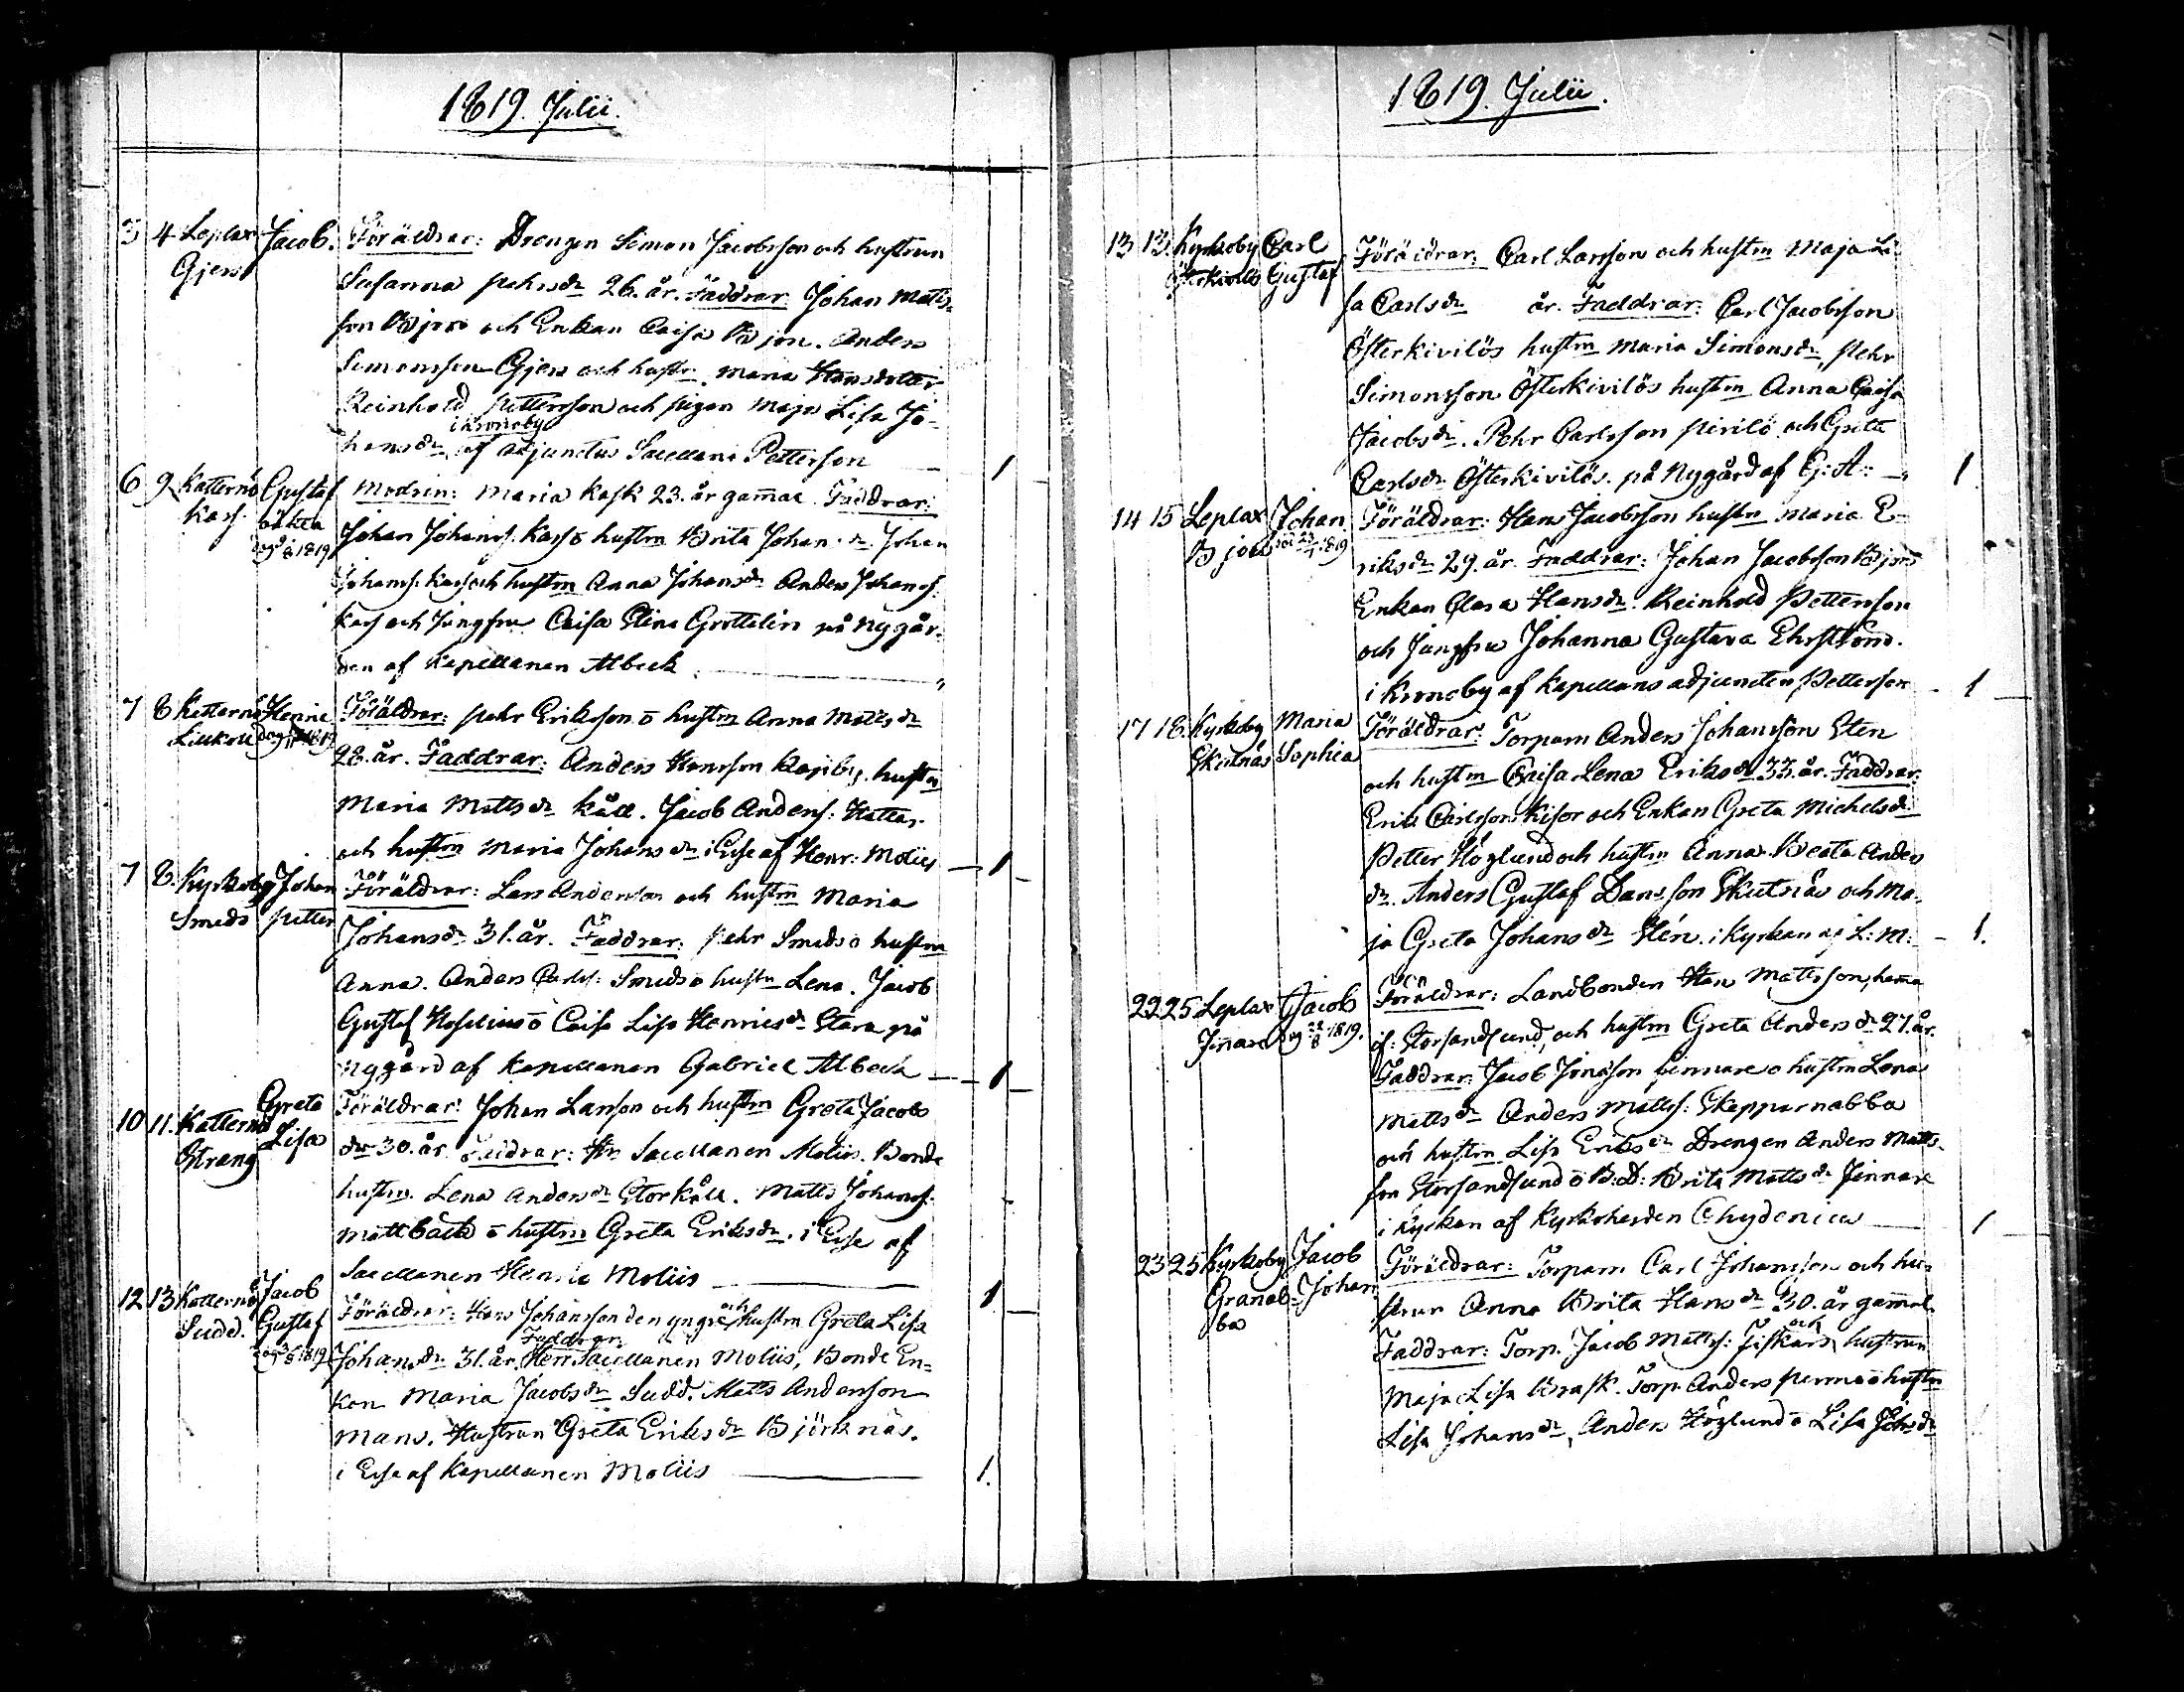 1819. Julii.
3 4 Leplax Jacob. Föräldrar: Drengen Simon Jacobsson och hustrun
Gjers Susanna Pehrsdr 26. år. Faddrar Johan Matts
son Björs och Enkan Caisa Björs. Anders
Simonsson Gjers och hustr. Maria Hansdotter
Reinhold Pettersson och pigan Maja Lisa Jo=
i Kronoby
hansdr af adjunctus Sacellani Petterson 1
6 9 Katternö Gustaf Modren: Maria Kass 23. år gammal. Faddrar:
Kass oäkta Johan Johanss: Kass o hustrn Brita Johansdr. Johan
1819 Johanss: Kass och hustrn Anna Johansdr Anders Johanss:
Kass och Jungfru Caisa Stina Grottelin på Nygår=
den af Kapellanen Albeck
7 8 Katternö Henric Föräldrar: Pehr Eriksson o hustrn Anna Mattsdr
Lillkåll 28. år. Faddrar: Anders Hansson Karjby. hustrn
Maria Mattsdr Kåll. Jacob Anderss: Kattar
och hustrn Maria Johansdr i Esse af Henr: Moliis 1
7 8. Kyrkoby Johan Föräldrar: Lars Andersson och hustrn Maria
Smeds Petter Johansdr 31. år. Faddrar: Pehr Smeds o hustrn
Anna. Anders Carlss: Smeds o hustr Lena. Jacob
Gustaf Roselius o Caisa Lisa Henricsdr Stara på
Nygård af Kapellanen Gabriel Albeck 1
10 11. Katternö Greta Föräldrar: Johan Larsson och hustrn Greta Jacobs
Strang Lisa dr 30. år. Faddrar: Hr Sacellanen Moliis. Bonde
hustrn. Lena Andersdr Storkåll. Matts Johanss:
Mattbäck o hustrn Greta Eriksdr. i Esse af
Sacellanen Henric Moliis 1
12 13 Katternö Jacob
Sudd. Gustaf Föräldrar: Hans Johansson den yngre och hustrn Greta Lisa
Faddrar
1819 Johansdr 31. år. Herr Sacellanen Moliis, Bonde En=
kan Maria Jacobsdr Sudd. Matts Andersson
Mans. Hustrun Greta Eriksdr Björknäs.
i Esse af Kapellanen Moliis 1.
1819. Julii.
13 13. Kyrkoby Carl Föräldrar: Carl Larsson och hustrn Maja Li=
Österkivilös Gustaf sa Carlsdr år. Faddrar: Carl Jacobsson
Österkivilös hustrn Maria Simonsdr, Pehr
Simonsson Österkivilös hustrn Anna Caisa
Jacobsdr. Pehr Carlsson Pirilö och Greta
Carlsdr Österkivilös. på Nygård af G: A: 1
14 15 Leplax Johan Föräldrar: Hans Jacobsson hustrn Maria E=
Björs 1819 riksdr 29. år. Faddrar: Johan Jacobsson Björs
Enkan Clara Hansdr. Reinhold Pettersson
och Jungfru Johanna Gustava Ehrström.
i Kronoby af Kapellans adjuncten Petterson 1
17 18. Kyrkoby Maria Föräldrar: Torparn Anders Johansson Sten
Skutnäs Sophia och hustrn Caisa Lena Eriksdr 33. år. Faddrar:
Erik Carlsson Kisor och Enkan Greta Michelsdr
Petter Höglund och hustrn Anna Beata Anders
dr. Anders Gustaf Danisson Skutnäs och Ma=
ja Greta Johansdr Stén. i Kyrkan af L: M: 1.
22 25 Leplax Jacob Föräldrar: Landbonden Hans Mattsson, hemma
Finnare 1819. if: Storsandsund, och hustrn Greta Andersdr 27. år.
Faddrar: Jacob Jonsson Finnare o hustrn Lena
Mattsdr Anders Mattss: Skepparnabba
och hustrn Lisa Eriksdr Drengen Anders Matts=
son Storsandsund o B: D: Brita Mattsdr Finnare
i Kyrkan af Kyrkoherden Chydenius 1
23 25 Kyrkoby Jacob Föräldrar: Torparn Carl Johansson och hu=
Granab= Johan strun Anna Brita Hansdr 30. år gammal.
ba Faddrar: Torp. Jacob Mattss: Fiskars och hustrun
Maja Lisa Brask. Torp. Anders Penna o hustrn
Lisa Johansdr, Anders Höglund o Lisa